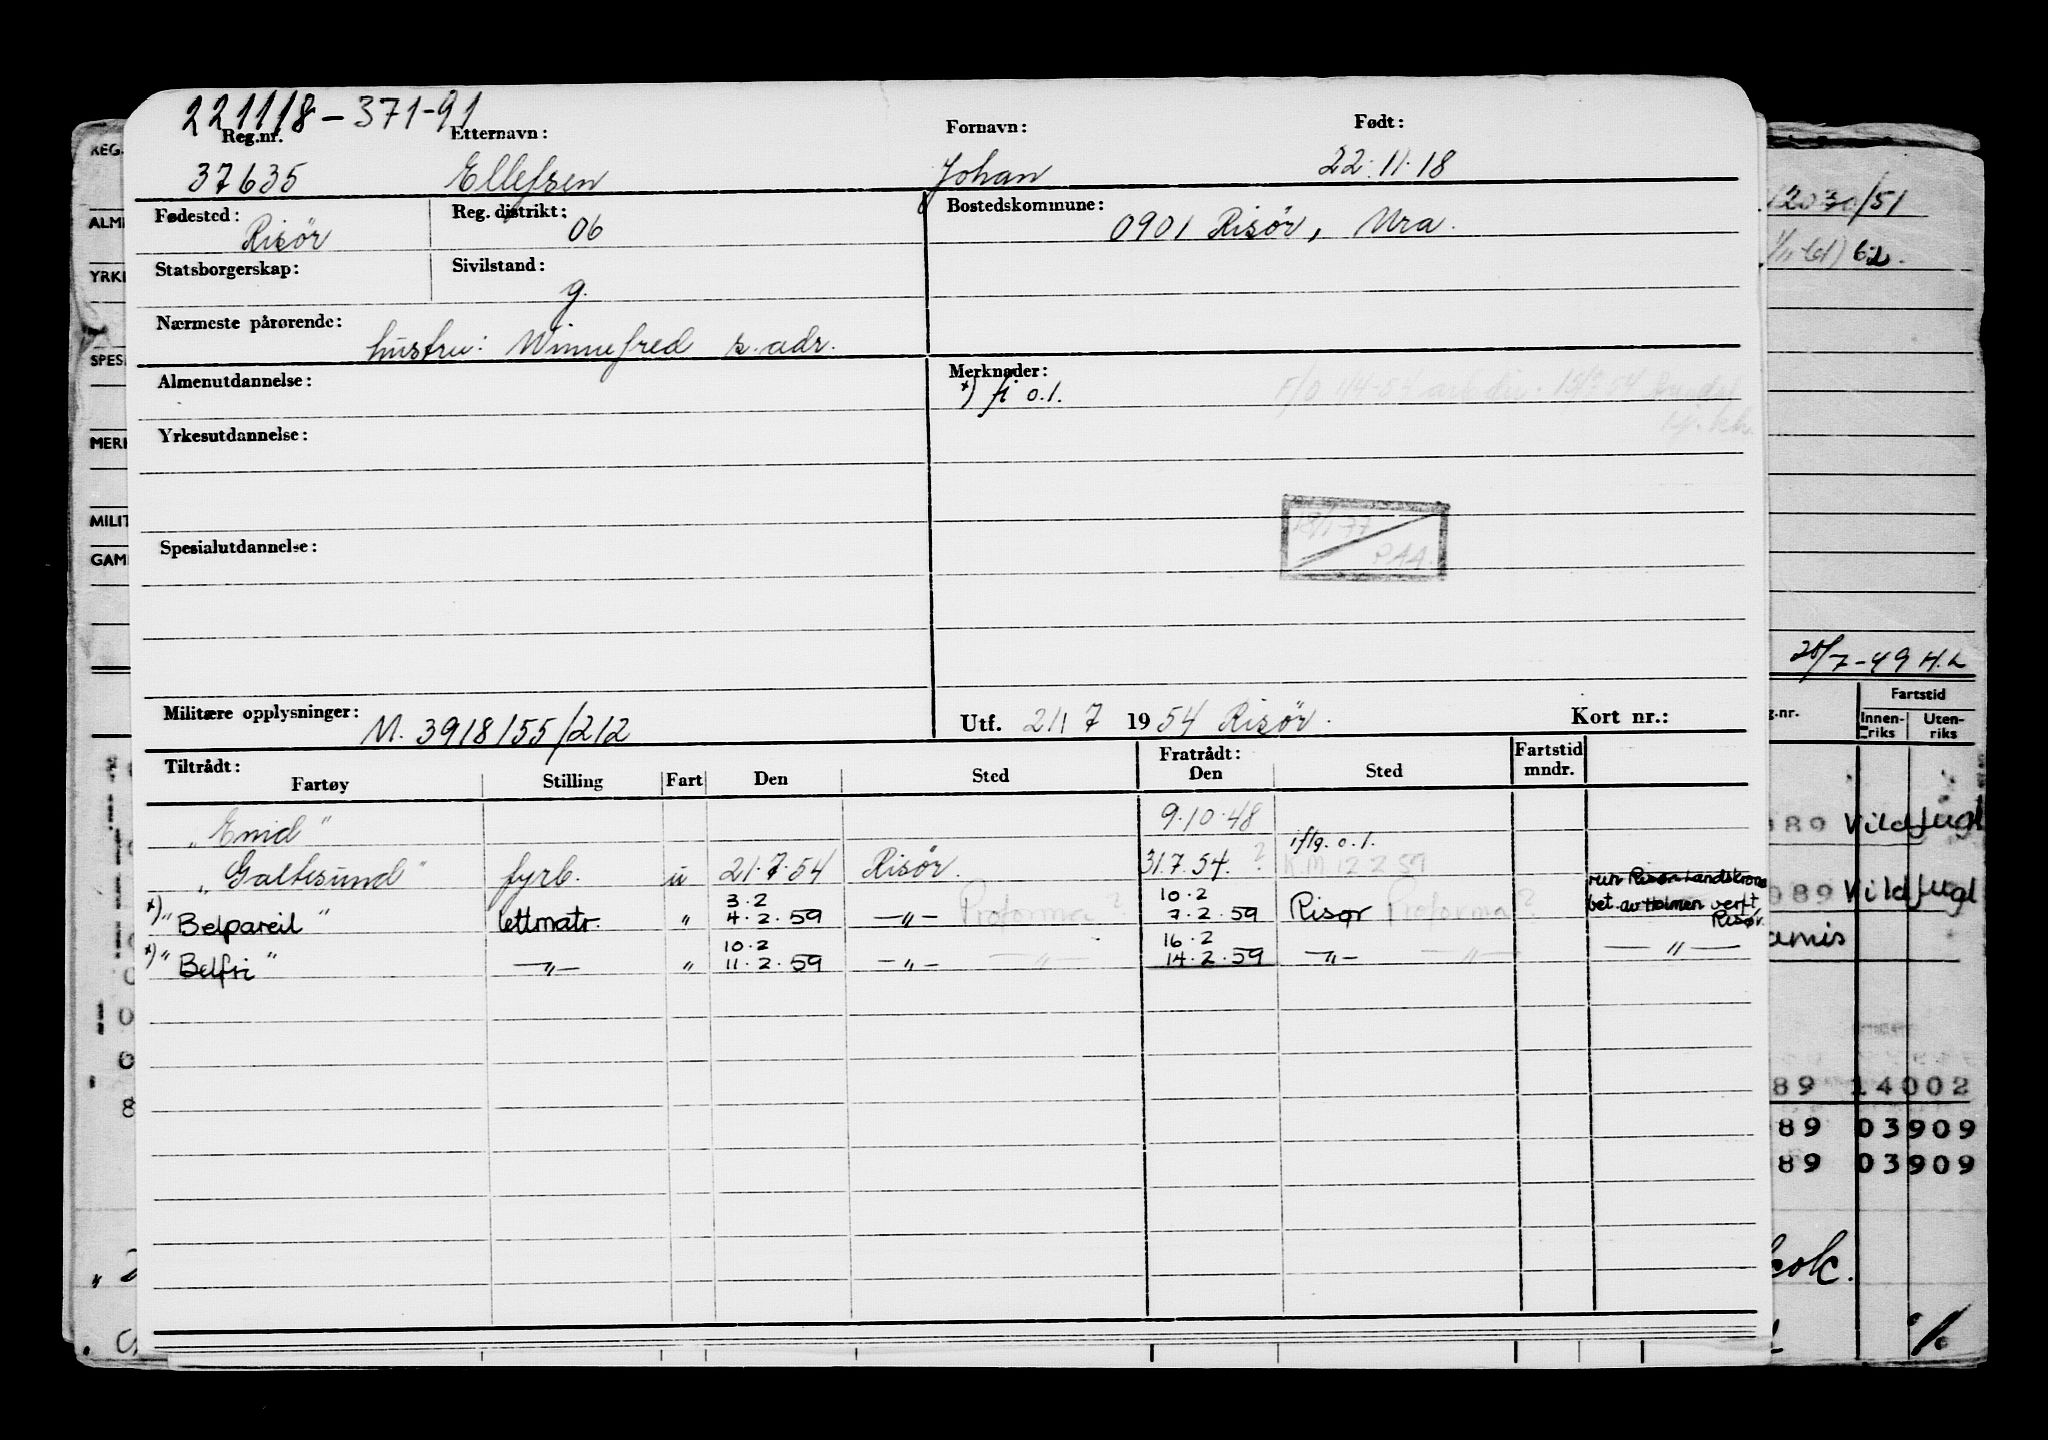 221118-371-91
Reg.nr. Etternavn: Fornavn: Født:
37635 Ellefsen Johan 22.11.18
Fødested: Reg. distrikt: Bostedskommune:
Risör 06 0901 Risör, Ura.
Statsborgerskap: Sivilstand:
g.
Nærmeste pårørende:
hustru: Winnefred s. adr.
Almenutdannelse: Merknader:
x) fi o.l.
Yrkesutdannelse:
18/1-77
PAA.
Spesialutdannelse:
Militære opplysninger: M. 3918/55/212 Utf. 21/7 1954 Risör. Kort nr.:
Tiltrådt: Fratrådt: Fartstid
Fartøy Stilling Fart Den Sted Den Sted mndr.
„Enid" 9.10.48
iflg. o.l.
„Galtesund" fyrb. u 21.7.54 Risör. 31.7.54. ? K.M 12 2 59
3.2 10.2 run Risør Landskrona
x) „Belpareil" lettmatr. " 4.2.59 —"— Proforma? 7.2.59 Risør Proforma? bet. av Holmen verft, Risør.
10.2 16.2
x) „Belfri" —"— " 11.2.59 —"— —"— 14.2.59 —"— —"— —"—
REG.
ALM
YRK
SPES
MER
MILIT
GAM
12030/51
62.
20/7-49 H.L
Fartstid
g.nr. Innenriks Utenriks
089 Vildfugl
089 Vildfugl
amis
89 14002
89 03909
89 03909
kok.